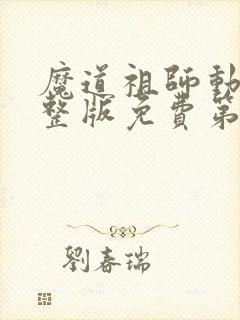 魔道祖師動
整版免費第
劉春瑞